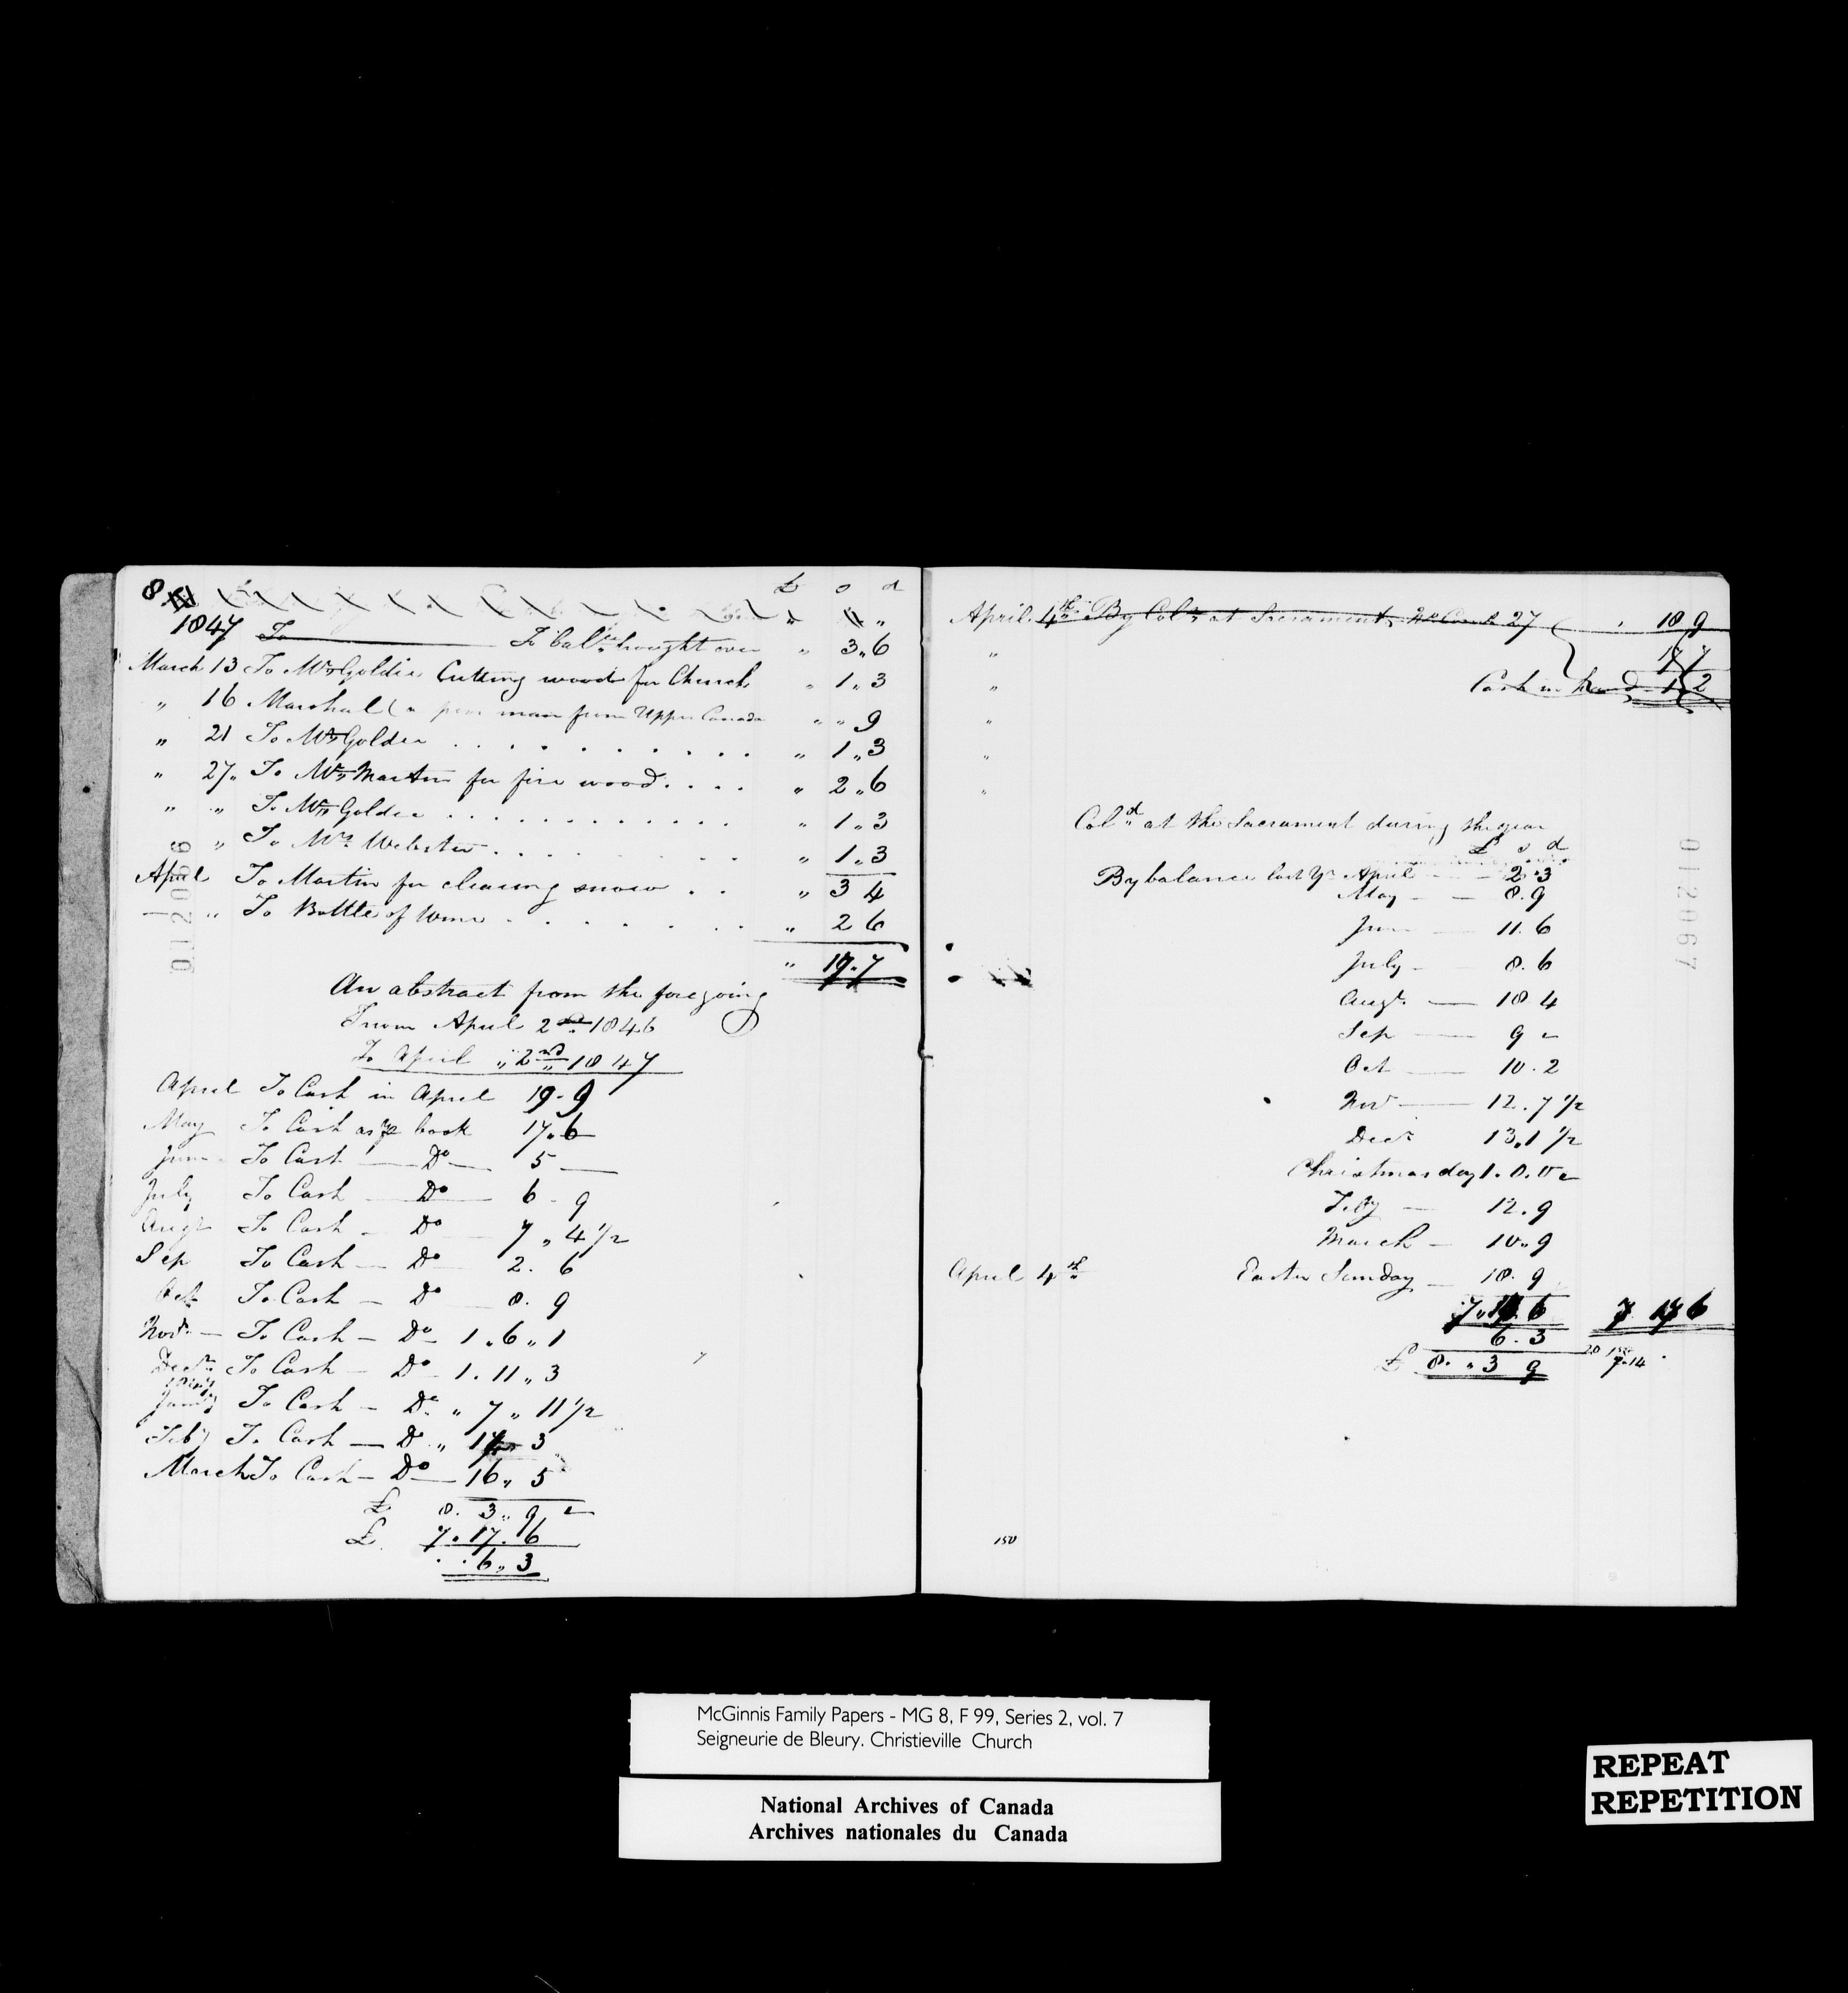 8
£ s d
1847 To To balce brought over " 3"6
March 13 To Mrs Goldie Cutting wood for Church " 1"3
" 16 Marshal (a poor man from Upper Canada " " 9
" 21 To Mrs Goldie . . . . . . . . . . " 1"3
" 27" To Mrs Martin for fire wood . . . . " 2"6
" " To Mrs Goldie . . . . . . . . . . " 1"3
" To Mrs Webster . . . . . . . . " 1"3
April To Martin for clearing snow . . " 3 4
" To Bottle of Wine . . . . . . . " 2 6
" 17.7
An abstract from the foregoing
From April 2d 1846
To April "2nd" 1847
April To Cash in April 19-9
May To Cash as pr book 17.6
June To Cash — Do — 5 —
July To Cash — Do — 6 - 9
Augt To Cash — Do — 7 " 4 1/2
Sep To Cash — Do 2. 6
Oct To Cash — Do — 8. 9
Novr — To Cash — Do 1.6"1
Decr To Cash — Do 1.11"3
Jany To Cash — Do " 7 " 11 1/2
Feby To Cash — Do " 3
March To Cash — Do — 16" 5
£ 8. 3" 9
£ 7.17.6
. . 6" 3
012066
April 4th By Colns at Sacrament 27 18 9
17 7
Cash in hand 1 2
Cold at the Sacrament during the year
£ s d
By balance last Yr April — 2.3
May — — 8.9
June — 11.6
July — 8.6
Augt. — 18 4
Sep — 9 -
Oct — 10.2
Novr — 12.7 1/2
Decr 13"1 1/2
Christmas day 1.0.0
Feby — 12.9
March — 10"9
April 4th Easter Sunday — 18.9
7" 17 6 7 17 6
6.3
£ 8. "3 9
20 150
7.14
150
012067
McGinnis Family Papers - MG 8, F 99, Series 2, vol. 7
Seigneurie de Bleury. Christieville Church
National Archives of Canada
Archives nationales du Canada
REPEAT
REPETITION